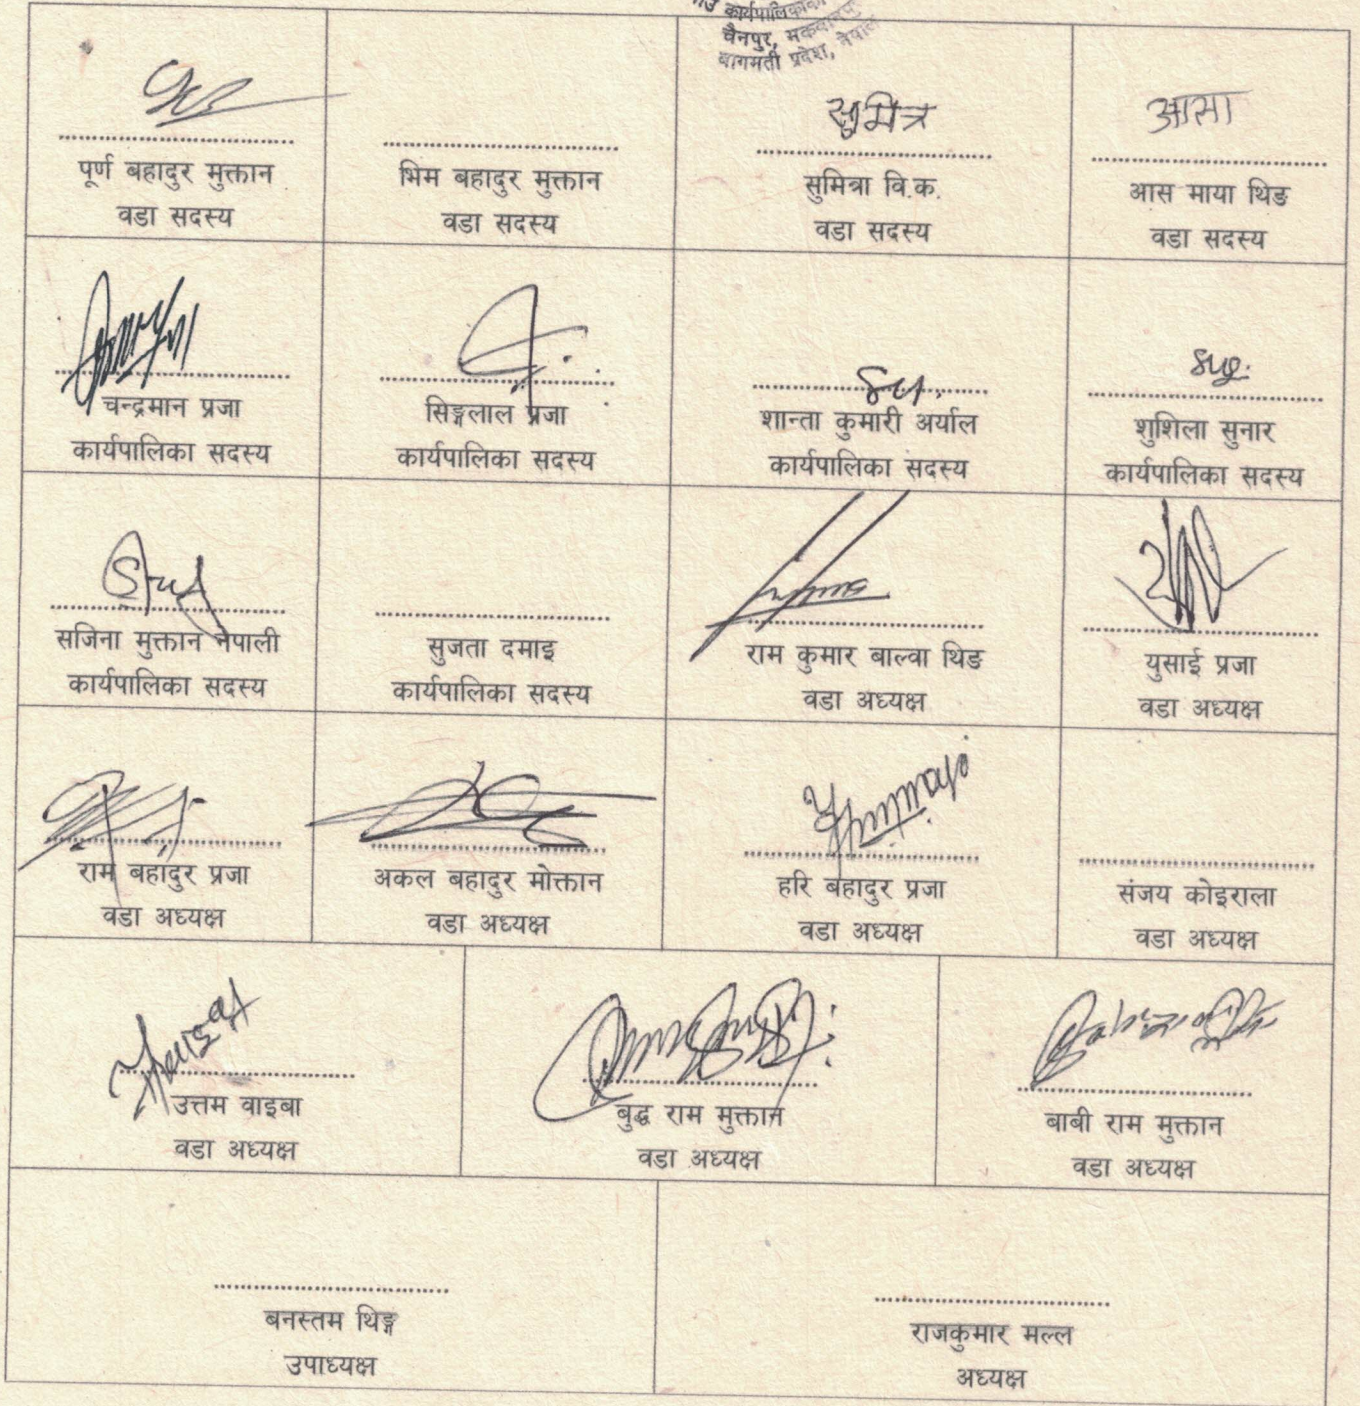 गाउँ कार्यपालिकाको
चैनपुर, मकवानपुर
बागमती प्रदेश, नेपाल
सुमित्र
आसा
पूर्ण बहादुर मुक्तान
वडा सदस्य
भिम बहादुर मुक्तान
वडा सदस्य
सुमित्रा वि.क.
वडा सदस्य
आस माया थिङ
वडा सदस्य
चन्द्रमान प्रजा
कार्यपालिका सदस्य
सिङ्गलाल प्रजा
कार्यपालिका सदस्य
शान्ता कुमारी अर्याल
कार्यपालिका सदस्य
शुशिला सुनार
कार्यपालिका सदस्य
सजिना मुक्तान नेपाली
कार्यपालिका सदस्य
सुजता दमाइ
कार्यपालिका सदस्य
राम कुमार बाल्वा थिङ
वडा अध्यक्ष
युसाई प्रजा
वडा अध्यक्ष
राम बहादुर प्रजा
वडा अध्यक्ष
अकल बहादुर मोक्तान
वडा अध्यक्ष
हरि बहादुर प्रजा
वडा अध्यक्ष
संजय कोइराला
वडा अध्यक्ष
उत्तम वाइबा
वडा अध्यक्ष
बुद्ध राम मुक्तान
वडा अध्यक्ष
बाबी राम मुक्तान
वडा अध्यक्ष
बनस्तम थिङ्ग
उपाध्यक्ष
राजकुमार मल्ल
अध्यक्ष